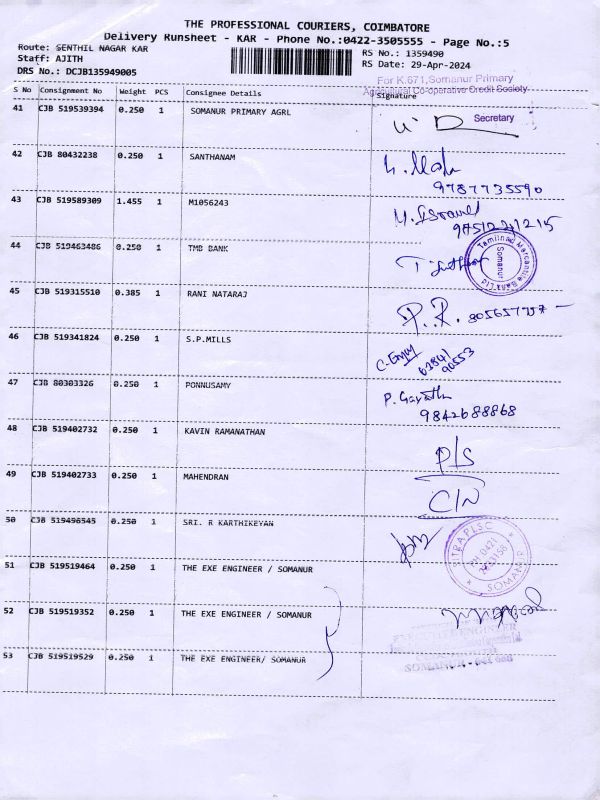 THE PROFESSIONAL COURIERS, COIMBATORE
Delivery Runsheet - KAR - Phone No.:0422-3505555 - Page No.:5
Route: SENTHIL NAGAR KAR
Staff: AJITH
DRS No.: DCJB135949005
RS No.: 1359490
RS Date: 29-Apr-2024
For K.671,Somanur Primary
Agricultural Co-operative Credit Society
S No Consignment No Weight PCS Consignee Details Signature
41 CJB 519539394 0.250 1 SOMANUR PRIMARY AGRL
Secretary
42 CJB 80432238 0.250 1 SANTHANAM
9787735590
43 CJB 519589309 1.455 1 M1056243
44 CJB 519463486 0.250 1 TMB BANK
Tamilnad Mercantile Bank Ltd
Somanur
45 CJB 519315510 0.385 1 RANI NATARAJ
P.R.
46 CJB 519341824 0.250 1 S.P.MILLS
47 CJB 80303326 0.250 1 PONNUSAMY
9842688868
48 CJB 519402732 0.250 1 KAVIN RAMANATHAN
P/S
49 CJB 519402733 0.250 1 MAHENDRAN
C/N
50 CJB 519496545 0.250 1 SRI. R KARTHIKEYAN
51 CJB 519519464 0.250 1 THE EXE ENGINEER / SOMANUR
52 CJB 519519352 0.250 1 THE EXE ENGINEER / SOMANUR
EXECUTIVE ENGINEER
53 CJB 519519529 0.250 1 THE EXE ENGINEER/ SOMANUR
SOMANUR